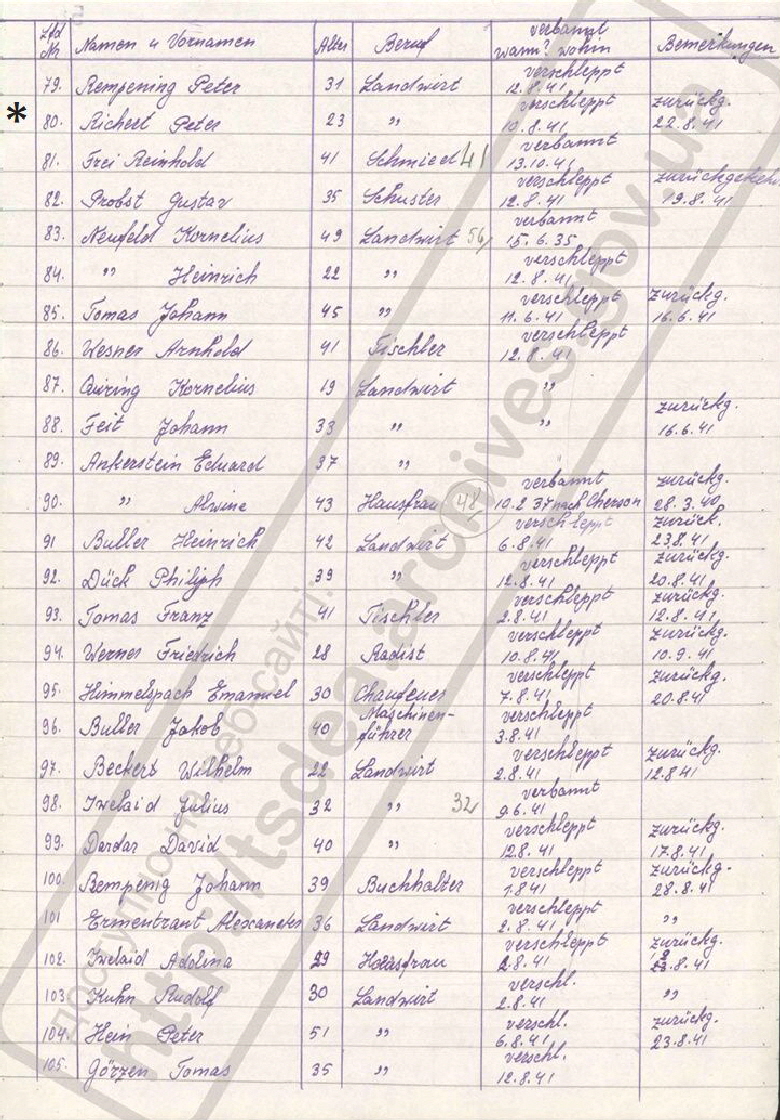 Lfd Nr. Namen u Vornamen Alter Beruf verbannt wann? wohin Bemerkungen
79. Rempening Peter 31 Landwirt verschleppt 12.8.41
* 80. Richert Peter 23 " verschleppt 10.8.41 zurückg. 22.8.41
81. Frei Reinhold 41 Schmied 41 verbannt 13.10.41
82. Probst Gustav 35 Schuster verschleppt 12.8.41 zurückgekeh 19.8.41
83. Neufeld Kornelius 49 Landwirt 56 verbannt 15.6.35
84. " Heinrich 22 " verschleppt 12.8.41
85. Tomas Johann 45 " verschleppt 11.6.41 zurückg. 16.6.41
86. Wesner Arnhold 41 Tischler verschleppt 12.8.41
87. Quiring Kornelius 19 Landwirt "
88. Feit Johann 33 " " zurückg. 16.6.41
89. Ankerstein Eduard 37 "
90. " Alwine 43 Hausfrau 48 verbannt 10.2 37 nach Cherson zurückg. 28.3.40
91 Buller Heinrich 42 Landwirt verschleppt 6.8.41 zurück. 23.8.41
92. Dück Philiph 39 " verschleppt 12.8.41 zurückg. 20.8.41
93. Tomas Franz 41 Tischler verschleppt 2.8.41 zurückg. 12.8.41
94. Werner Friedrich 28 Radist verschleppt 10.8.41 zurückg. 10.9.41
95. Himmelspach Emanuel 30 Chaufeuer verschleppt 7.8.41 zurückg. 20.8.41
96. Buller Jakob 40 Maschinen-führer verschleppt 3.8.41
97. Beckert Wilhelm 22 Landwirt verschleppt 2.8.41 zurückg. 12.8.41
98. Iwelaid Julius 32 " 32 verbannt 9.6.41
99. Dardar David 40 " verschleppt 12.8.41 zurückg. 17.8.41
100. Rempenig Johann 39 Buchhalter verschleppt 1.8.41 zurückg. 28.8.41
101 Ermentraut Alexander 36 Landwirt verschleppt 2.8.41 "
102. Iwelaid Adolina 29 Hausfrau verschleppt 2.8.41 zurückg. .8.41
103. Kuhn Rudolf 30 Landwirt verschl. 2.8.41 "
104. Hein Peter 51 " verschl. 6.8.41 zurückg. 23.8.41
105. Görzen Tomas 35 " verschl. 12.8.41
доступно на веб-сайті:
http://tsdea.archives.gov.ua